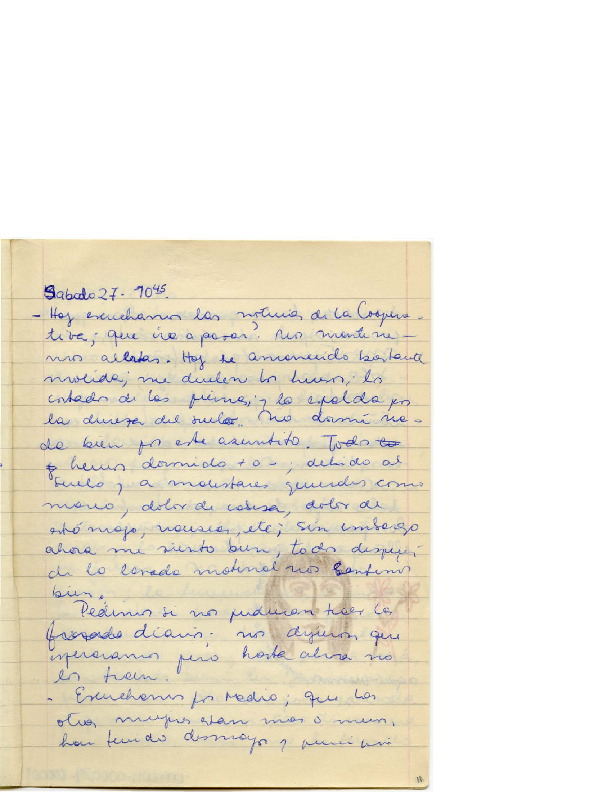 Sabado 27 - 10 45.
- Hoy escuchamos las noticias de la Coopera-
tiva; que ira a pasar? Nos mantene-
mos alertas. Hoy he amanecido bastante
molida; me duelen los huesos, los
costados de las piernas, y la espalda por
la dureza del suelo. No dormí na-
da bien por este asuntito. Todos
hemos dormido + o -; debido al
suelo y a malestares generales como
mareo, dolor de cabeza, dolor de
estómago, nauseas, etc; sin embargo
ahora me siento bien, todos después
de la lavada matinal nos sentimos
bien.
Pedimos si nos pudieran traer los
diarios; nos dijeron que
esperaramos pero hasta ahora no
los traen.
- Escuchamos por radio; que las
otras mujeres estan mas o menos,
han tenido desmayos y